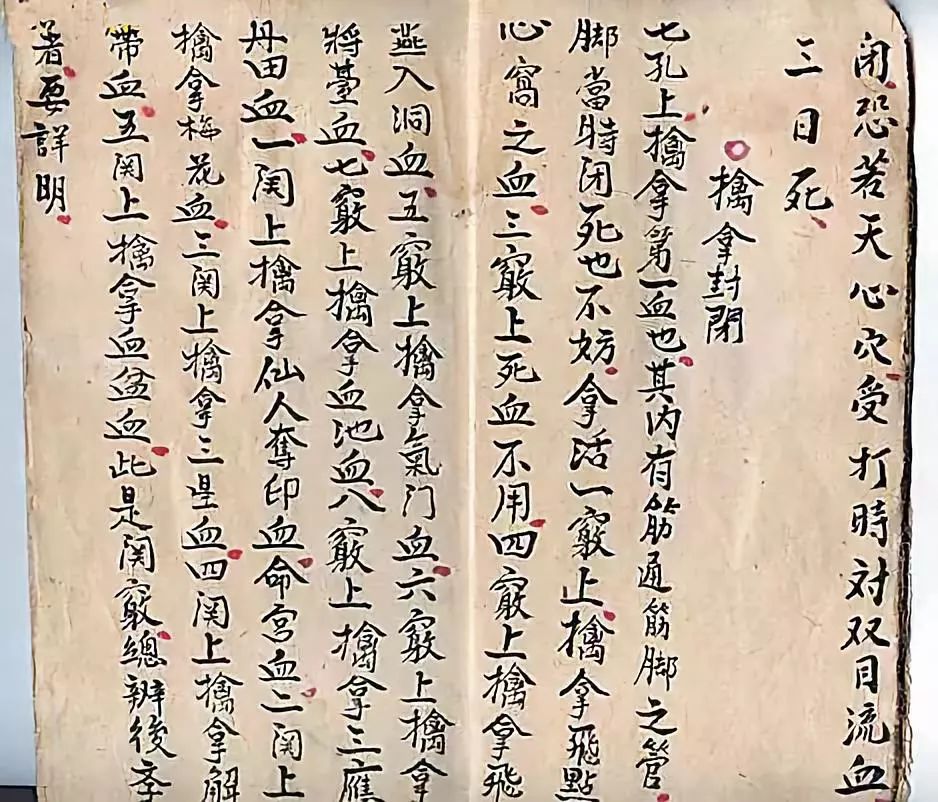 闭恐若天心穴受打時対双目流血
三日死
擒拿封閉
七孔上擒拿第一血也其内有筋通筋脚之管
脚當時闭死也不妨拿活一竅上擒拿飛點
心窩之血三竅上死血不用四竅上擒拿飛
燕入洞血五竅上擒拿氣门血六竅上擒拿
將臺血七竅上擒拿血池血八竅上擒拿三應
丹田血一関上擒拿仙人奪印血命宮血二関上
擒拿梅花血三関上擒拿三星血四関上擒拿解
帶血五関上擒拿血盆血此是関竅總辨後李
着要詳明